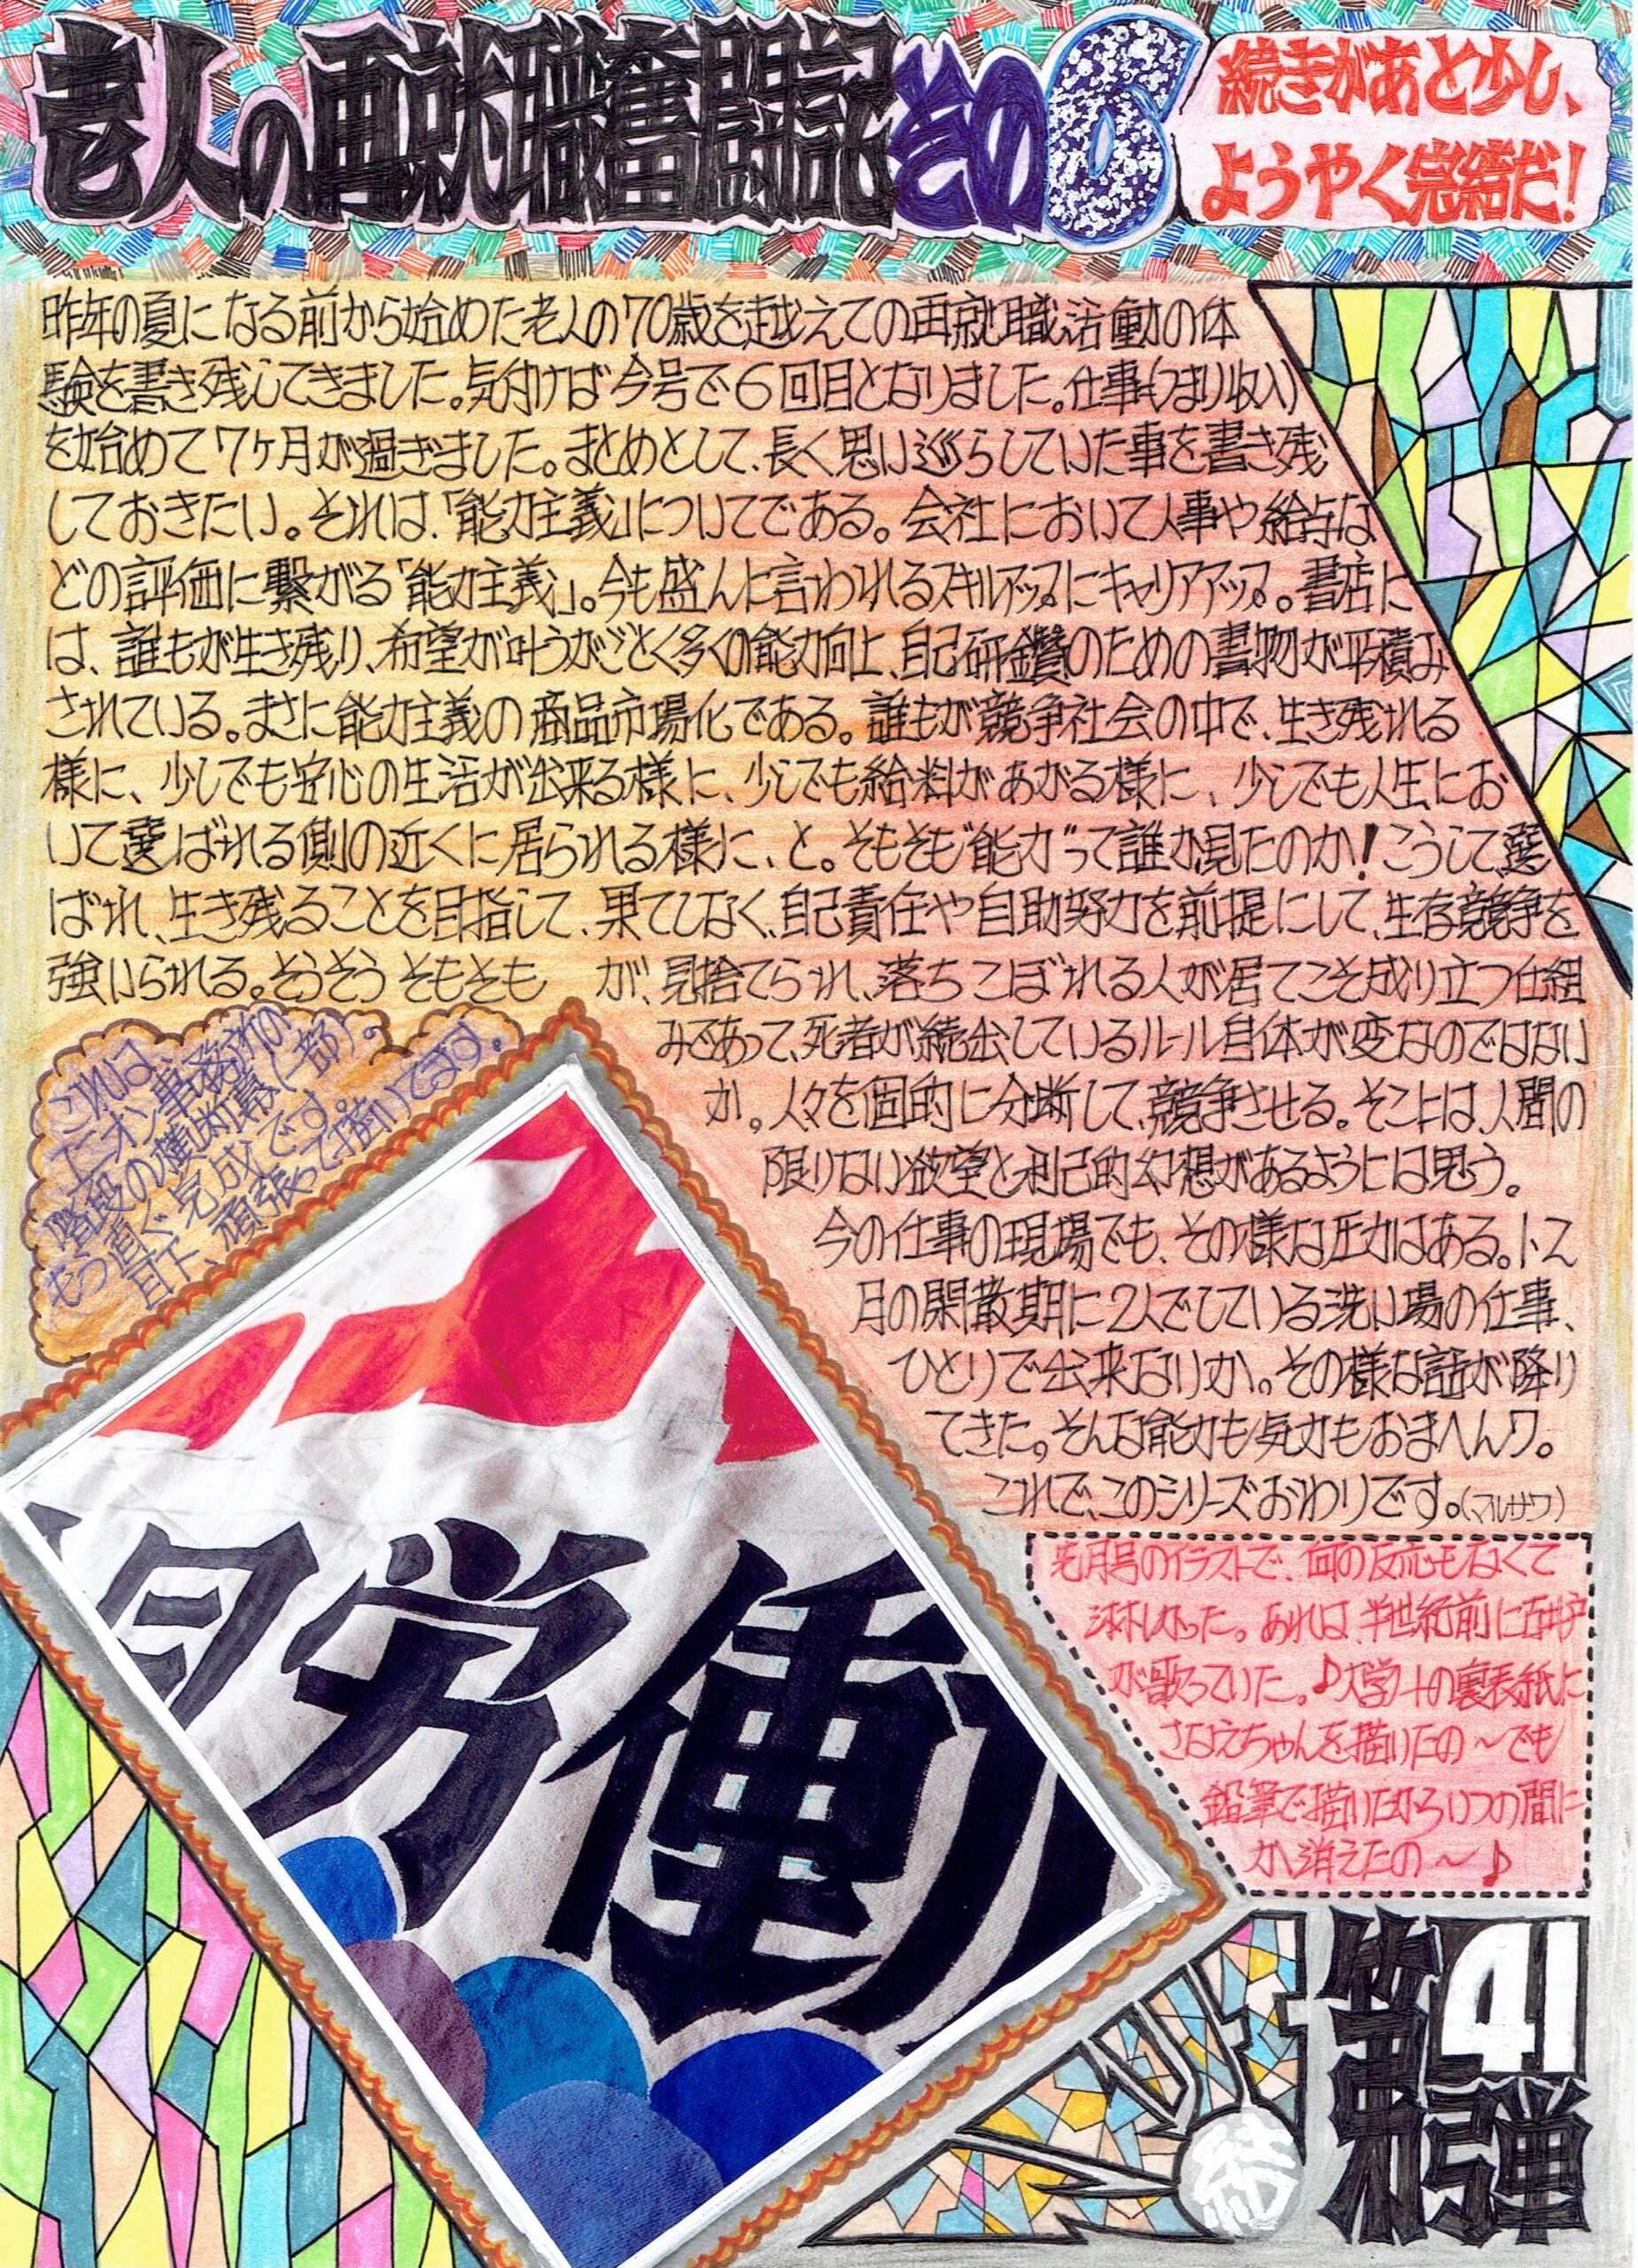 老人の再就職奮闘記その6
続きがあと少し、
ようやく完結だ!
昨年の夏になる前から始めた老人の70歳を越えての再就職活動の体
験を書き残してきました。気付けば今号で6回目となりました。仕事(つまり収入)
を始めて7ヶ月が過ぎました。まとめとして、長く思い巡らしていた事を書き残
しておきたい。それは、「能力主義」についてである。会社において人事や給与な
どの評価に繋がる「能力主義」。今も盛んに言われるスキルアップにキャリアアップ。書店に
は、誰もが生き残り、希望が叶うがごとく多くの能力向上、自己研鑽のための書物が平積み
されている。まさに能力主義の商品市場化である。誰もが競争社会の中で、生き残れる
様に、少しでも安心の生活が出来る様に、少しでも給料があがる様に、少しでも人生にお
いて選ばれる側の近くに居られる様に、と。そもそも“能力”って誰か見たのか!こうして、選
ばれ、生き残ることを目指して、果てしなく、自己責任や自助努力を前提にして、生存競争を
強いられる。そうそう そもそも が、見捨てられ、落ちこぼれる人が居てこそ成り立つ仕組
みであって、死者が続出しているルール自体が変なのではない
か。人々を個的に分断して、競争させる。そこには、人間の
限りない欲望と利己的幻想があるようには思う。
今の仕事の現場でも、その様な圧力はある。1、2
月の閑散期に2人でしている洗い場の仕事、
ひとりで出来ないか。その様な話が降り
てきた。そんな能力も気力もおまへんワ。
これで、このシリーズおわりです。(マルサワ)
これは、
ユニオン事務所の
階段の横断幕(一部)。
もう直ぐ完成です。
目下、頑張って描いてます。
労働
先月号のイラストで、何の反応もなくて
淋しかった。あれは、半世紀前に古井戸
が歌っていた。♪大学ノートの裏表紙に
さなえちゃんを描いたの〜でも
鉛筆で描いたからいつの間に
か消えたの〜♪
第41弾
結